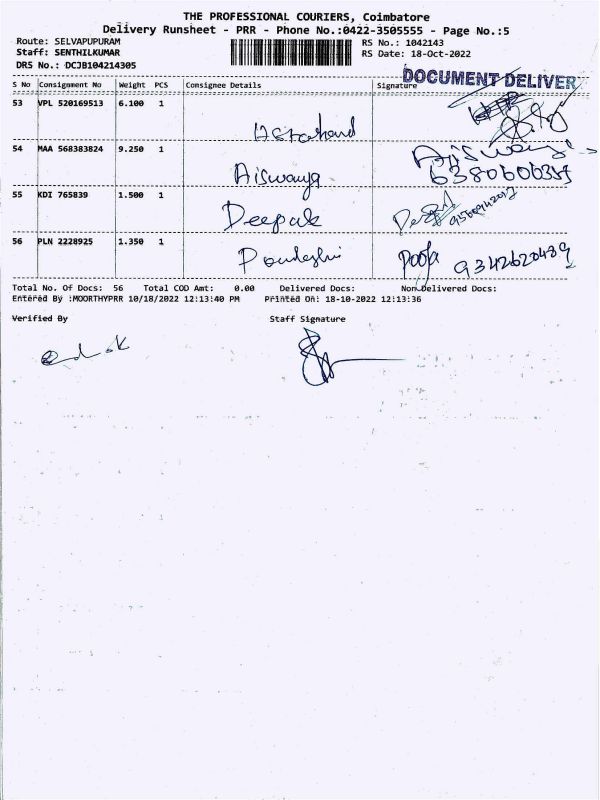 THE PROFESSIONAL COURIERS, Coimbatore
Delivery Runsheet - PRR - Phone No.:0422-3505555 - Page No.:5
Route: SELVAPUPURAM RS No.: 1042143
Staff: SENTHILKUMAR RS Date: 18-Oct-2022
DRS No.: DCJB104214305
DOCUMENT DELIVER
S No Consignment No Weight PCS Consignee Details Signature
53 VPL 520169513 6.100 1
54 MAA 568383824 9.250 1 Aiswarya
6380606359
55 KDI 765839 1.500 1 Deepak
56 PLN 2228925 1.350 1 Pooja 9342620489
Total No. Of Docs: 56 Total COD Amt: 0.00 Delivered Docs: Non Delivered Docs:
Entered By :MOORTHYPRR 10/18/2022 12:13:40 PM Printed On: 18-10-2022 12:13:36
Verified By Staff Signature